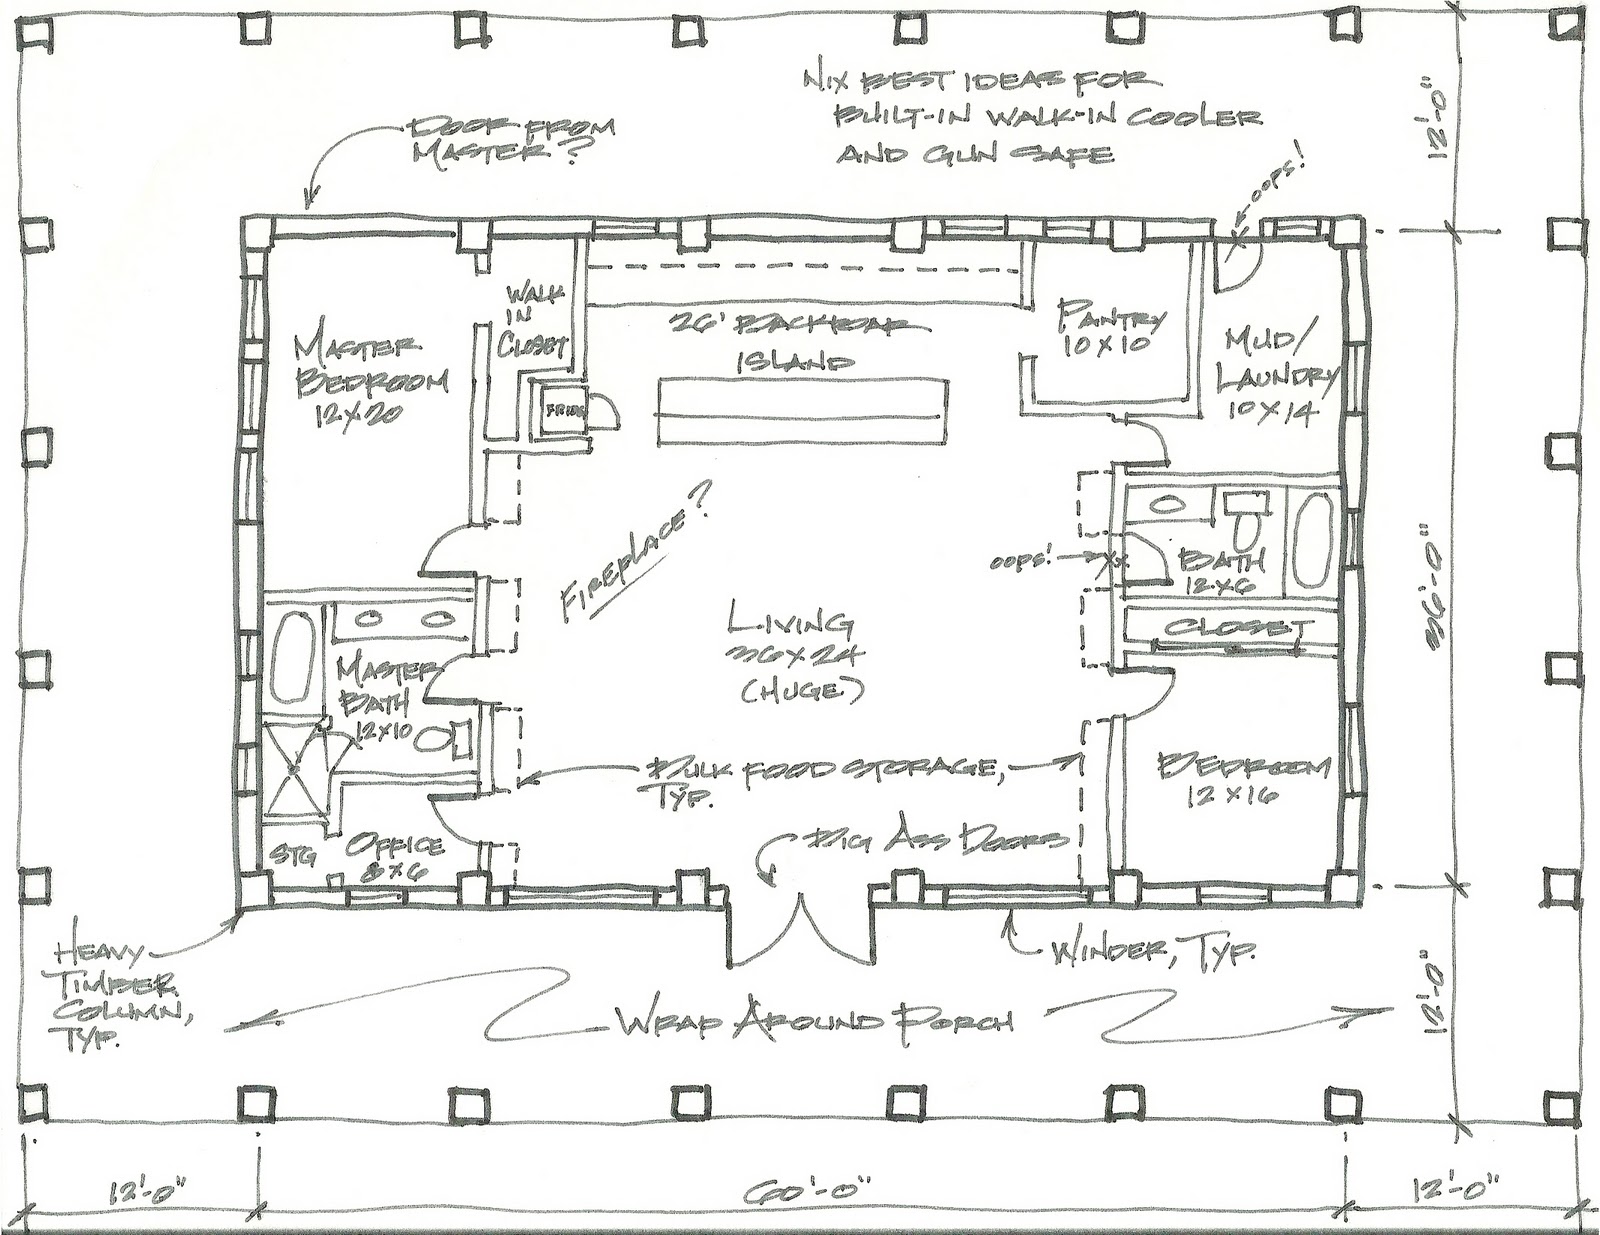 NIX BEST IDEAS FOR
BUILT-IN WALK-IN COOLER
AND GUN SAFE
DOOR FROM
MASTER?
OOPS!
12'-0"
WALK
IN
CLOSET
26' BACKBAR
ISLAND
PANTRY
10X10
MUD/
LAUNDRY
10X14
MASTER
BEDROOM
12X20
FRIDG
FIREPLACE?
OOPS!
BATH
12X6
CLOSET
36'-0"
LIVING
36X24
(HUGE)
MASTER
BATH
12X10
BULK FOOD STORAGE,
TYP.
BEDROOM
12X16
BIG ASS DOORS
STG
OFFICE
8X6
HEAVY
TIMBER
COLUMN,
TYP.
WINDER, TYP.
WRAP AROUND PORCH
12'-0"
12'-0"
60'-0"
12'-0"